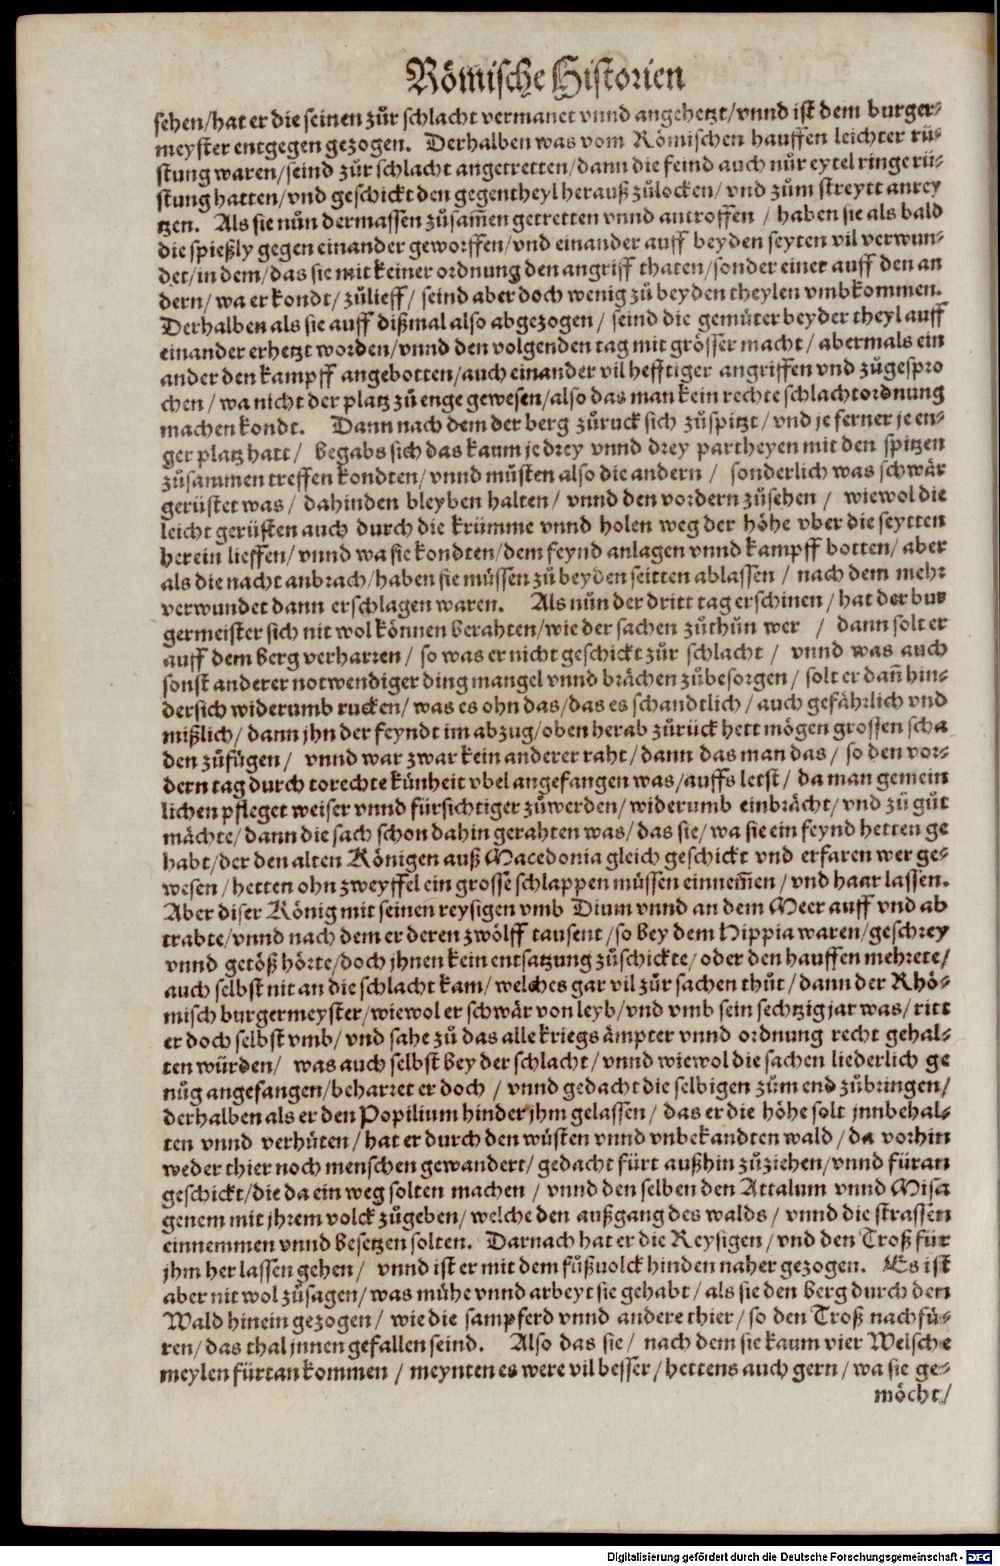 Römische Historien
sehen/hat er die seinen zůr schlacht vermanet vnnd angehetzt/vnnd ist dem burger-
meyster entgegen gezogen. Derhalben was vom Römischen hauffen leichter rü-
stung waren/seind zůr schlacht angetretten/dann die feind auch nůr eytel ringe rü-
stung hatten/vnd geschickt den gegentheyl herauß zůlocken/vnd zům streytt anrey
tzen. Als sie nůn dermassen zůsam̃en getretten vnnd antroffen / haben sie als bald
die spießly gegen einander geworffen/vnd einander auff beyden seyten vil verwun-
det/in dem/das sie mit keiner ordnung den angriff thaten/sonder einer auff den an
dern/wa er kondt/zůlieff/ seind aber doch wenig zů beyden theylen vmbkommen.
Derhalben als sie auff dißmal also abgezogen/ seind die gemüter beyder theyl auff
einander erhetzt worden/vnnd den volgenden tag mit grösser macht/ abermals ein
ander den kampff angebotten/auch einander vil hefftiger angriffen vnd zůgespro
chen/ wa nicht der platz zů enge gewesen/also das man kein rechte schlachtordnung
machen kondt. Dann nach dem der berg zůruck sich zůspitzt/vnd je ferner je en-
ger platz hatt/ begabs sich das kaum je drey vnnd drey partheyen mit den spitzen
zůsammen treffen kondten/vnnd můsten also die andern / sonderlich was schwär
gerüstet was/ dahinden bleyben halten/ vnnd den vordern zůsehen / wiewol die
leicht gerüsten auch durch die krümme vnnd holen weg der höhe vber die seytten
herein lieffen/vnnd wa sie kondten/dem feynd anlagen vnnd kampff botten/aber
als die nacht anbrach/haben sie müssen zů beyden seitten ablassen / nach dem mehr
verwundet dann erschlagen waren. Als nůn der dritt tag erschinen/hat der bur
germeister sich nit wol können berahten/wie der sachen zůthůn wer / dann solt er
auff dem berg verharren/ so was er nicht geschickt zůr schlacht/ vnnd was auch
sonst anderer notwendiger ding mangel vnnd brächen zůbesorgen/ solt er dañ hin-
dersich widerumb rucken/was es ohn das/das es schandtlich/auch gefährlich vnd
mißlich/dann jhn der feyndt im abzug/oben herab zůrück hett mögen grossen scha
den zůfügen/ vnnd war zwar kein anderer raht/dann das man das/ so den vor-
dern tag durch torechte künheit vbel angefangen was/auffs letst/da man gemein
lichen pfleget weiser vnnd fürsichtiger zůwerden/widerumb einbrächt/vnd zů gůt
mächte/dann die sach schon dahin gerahten was/das sie/wa sie ein feynd hetten ge
habt/der den alten Königen auß Macedonia gleich geschickt vnd erfaren wer ge-
wesen/hetten ohn zweyffel ein grosse schlappen müssen einnem̃en/vnd haar lassen.
Aber diser König mit seinen reysigen vmb Dium vnnd an dem Meer auff vnd ab
trabte/vnnd nach dem er deren zwölff tausent/so bey dem Hippia waren/geschrey
vnnd getöß hörte/doch jhnen kein entsatzung zůschickte/oder den hauffen mehrete/
auch selbst nit an die schlacht kam/welches gar vil zůr sachen thůt/dann der Rhö-
misch burgermeyster/wiewol er schwär von leyb/vnd vmb sein sechtzig jar was/ritt
er doch selbst vmb/vnd sahe zů das alle kriegs ämpter vnnd ordnung recht gehal-
ten würden/ was auch selbst bey der schlacht/vnnd wiewol die sachen liederlich ge
nůg angefangen/beharret er doch / vnnd gedacht die selbigen zům end zůbringen/
derhalben als er den Popilium hinder jhm gelassen/das er die höhe solt jnnbehal-
ten vnnd verhüten/hat er durch den wůsten vnnd vnbekandten wald/da vorhin
weder thier noch menschen gewandert/gedacht fürt außhin zůziehen/vnnd füran
geschickt/die da ein weg solten machen / vnnd den selben den Attalum vnnd Misa
genem mit jhrem volck zůgeben/welche den außgang des walds/vnnd die strassen
einnemmen vnnd besetzen solten. Darnach hat er die Reysigen/vnd den Troß für
jhm her lassen gehen/ vnnd ist er mit dem fůßuolck hinden naher gezogen. Es ist
aber nit wol zůsagen/was mühe vnnd arbeyt sie gehabt/als sie den berg durch den
Wald hinein gezogen/ wie die sampferd vnnd andere thier/so den Troß nachfü-
ren/das thal jnnen gefallen seind. Also das sie/ nach dem sie kaum vier Welsche
meylen fürtan kommen / meynten es were vil besser/hettens auch gern/wa sie ge-
möcht/
Digitalisierung gefördert durch die Deutsche Forschungsgemeinschaft - DFG